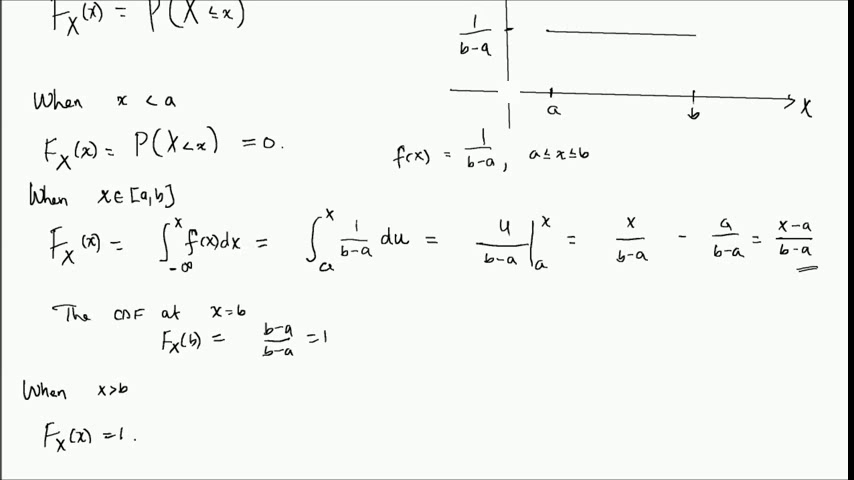 F_X(x) = P(X ≤ x)
1/(b-a)
a b X
When x < a
F_X(x) = P(X < x) = 0.
f(x) = 1/(b-a), a ≤ x ≤ b
When x ∈ [a,b]
F_X(x) = ∫_{-∞}^{x} f(x)dx = ∫_a^x 1/(b-a) du = u/(b-a) |_a^x = x/(b-a) - a/(b-a) = (x-a)/(b-a)
The CDF at x=b
F_X(b) = (b-a)/(b-a) = 1
When x>b
F_X(x) = 1.